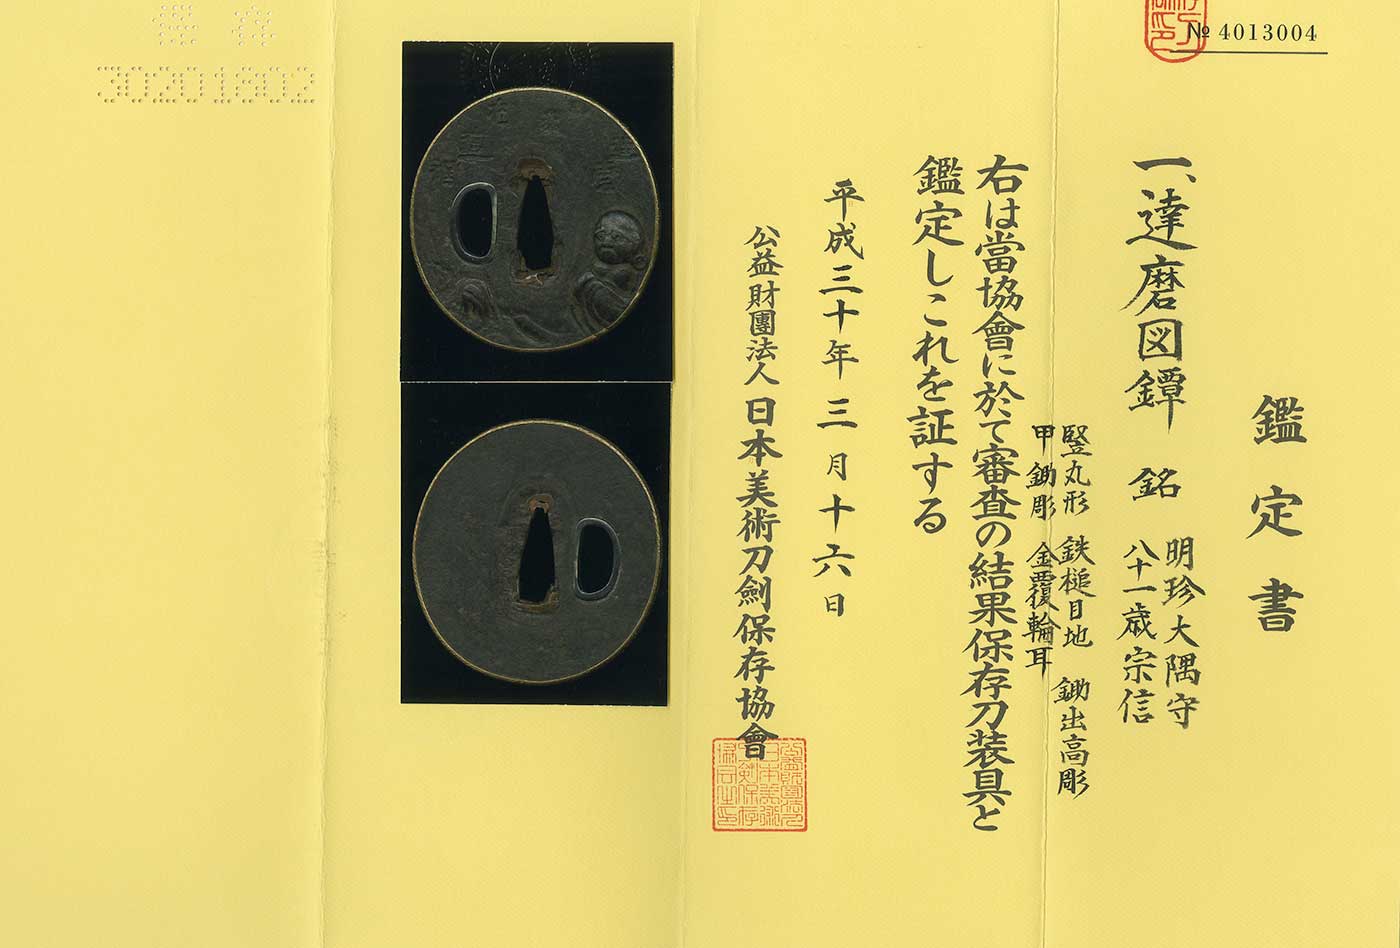 № 4013004
鑑定書
一、達磨図鐔 銘 明珍大隅守
八十一歳宗信
竪丸形 鉄槌目地 鋤出高彫
甲鋤彫 金覆輪耳
右は當協會に於て審査の結果保存刀装具と
鑑定しこれを証する
平成三十年三月十六日
公益財團法人 日本美術刀劍保存協會
保存
30201802